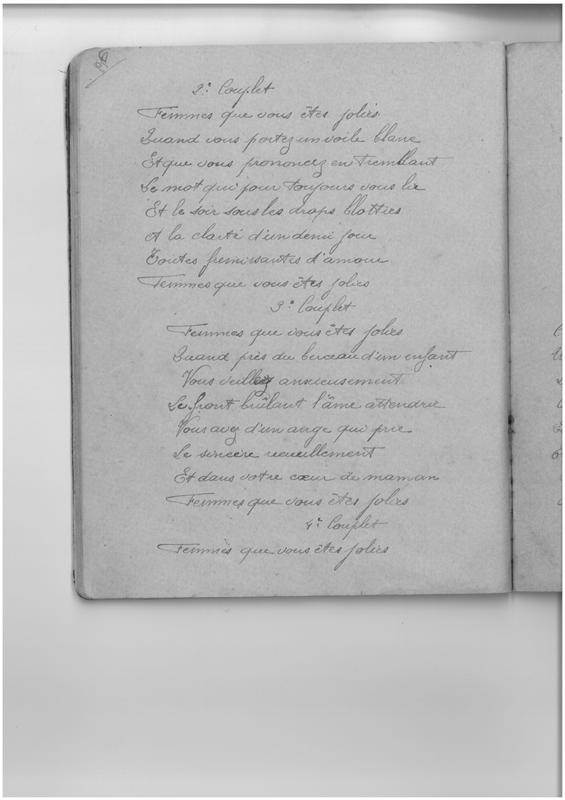 2e Couplet
Femmes que vous êtes jolies
Quand vous portez un voile blanc
Et que vous prononcez en tremblant
Le mot qui pour toujours vous lie
Et le soir sous les draps blotties
A la clarté d'un demi jour
Toutes fremissantes d'amour
Femmes que vous êtes jolies
3e Couplet
Femmes que vous êtes jolies
Quand près du berceau d'un enfant
Vous veillez anxieusement
Le front brûlant l'âme attendrie
Vous avez d'un ange qui prie
Le sincère recueillement
Et dans votre cœur de maman
Femmes que vous êtes jolies
4e Couplet
Femmes que vous êtes jolies